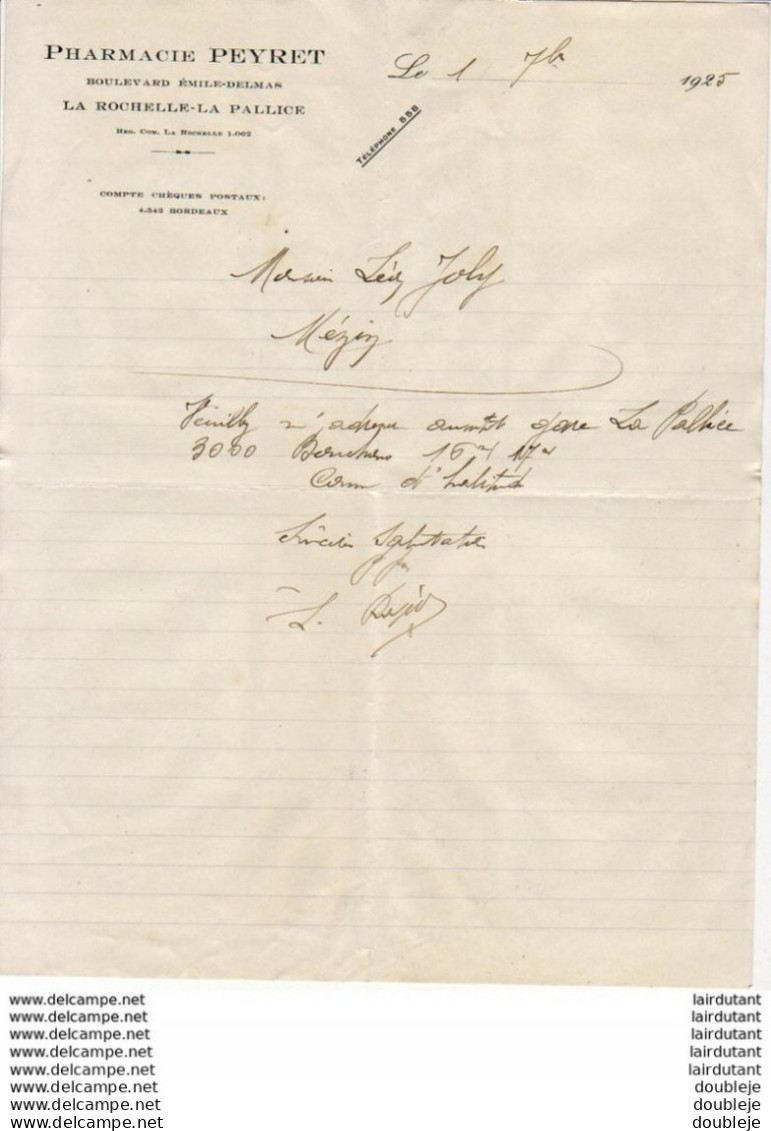 PHARMACIE PEYRET
BOULEVARD ÉMILE-DELMAS
LA ROCHELLE-LA PALLICE
REG. COM. LA ROCHELLE 1.002
COMPTE CHÈQUES POSTAUX:
4.542 BORDEAUX
Le 1 7bre 1925
TÉLÉPHONE 558
Monsieur Léon Joly
Mézin
Veuillez m'adresser gare La Pallice
3000 Bouchons 16 17
Comme d'habitude
Sincères Salutations
L.
www.delcampe.net lairdutant
www.delcampe.net lairdutant
www.delcampe.net lairdutant
www.delcampe.net lairdutant
www.delcampe.net lairdutant
www.delcampe.net doubleje
www.delcampe.net doubleje
www.delcampe.net doubleje